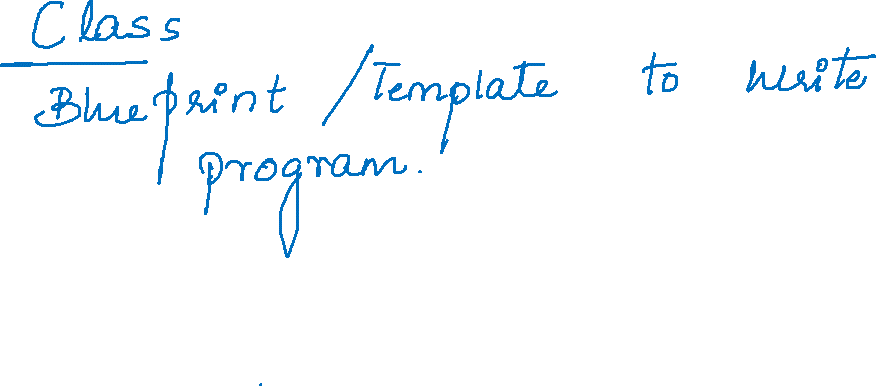 Class
Blueprint / Template to write
program.